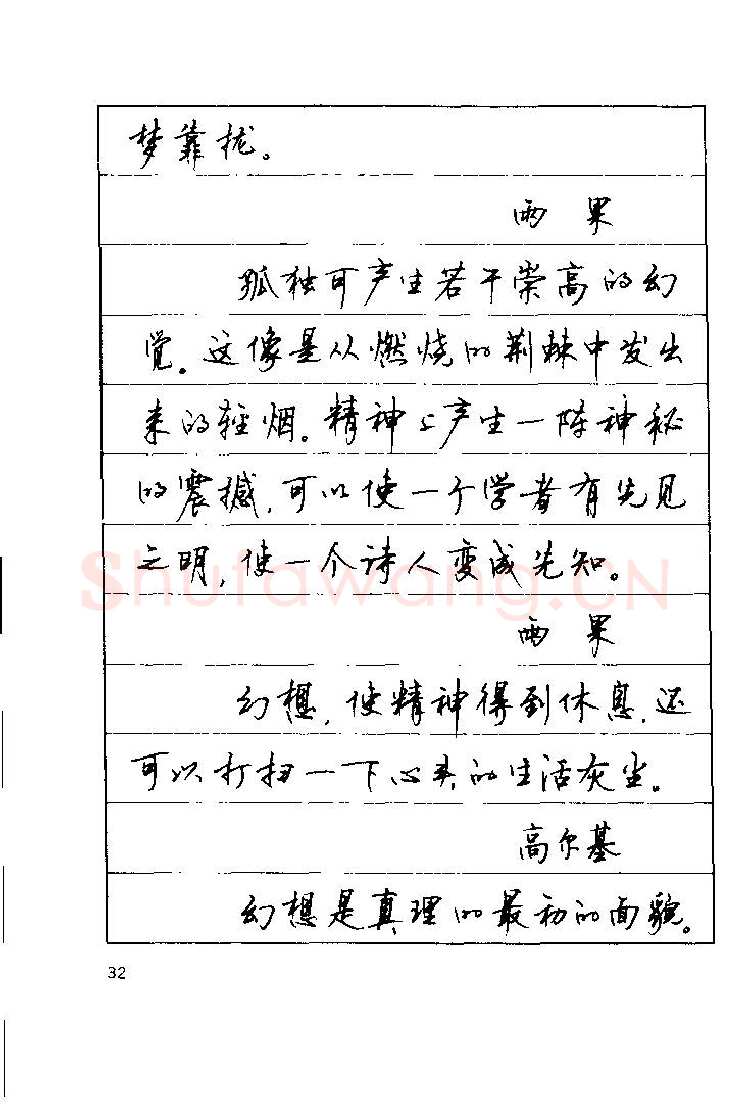 梦靠拢。
雨果
孤独可产生若干崇高的幻
觉。这像是从燃烧的荆棘中发出
来的轻烟。精神上产生一阵神秘
的震撼,可以使一个学者有先见
之明,使一个诗人变成先知。
Shufawang.CN
雨果
幻想,使精神得到休息,还
可以打扫一下心头的生活灰尘。
高尔基
幻想是真理的最初的面貌。
32